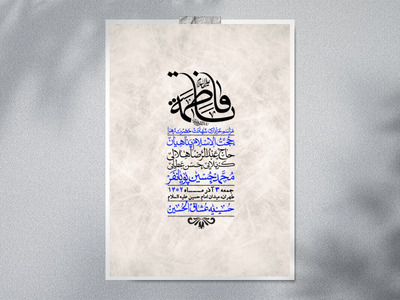 فاطمة
مراسم عزاداری شهادت حضرت زهرا
حجت الاسلام پناهیان
حاج عبدالرضا هلالی
کربلایی حسن عطایی
محمدحسین پویانفر
جمعه ۳ آذر ماه ۱۴۰۲
طهران، میدان امام حسین علیه السلام
حسینیه عشاق الحسین